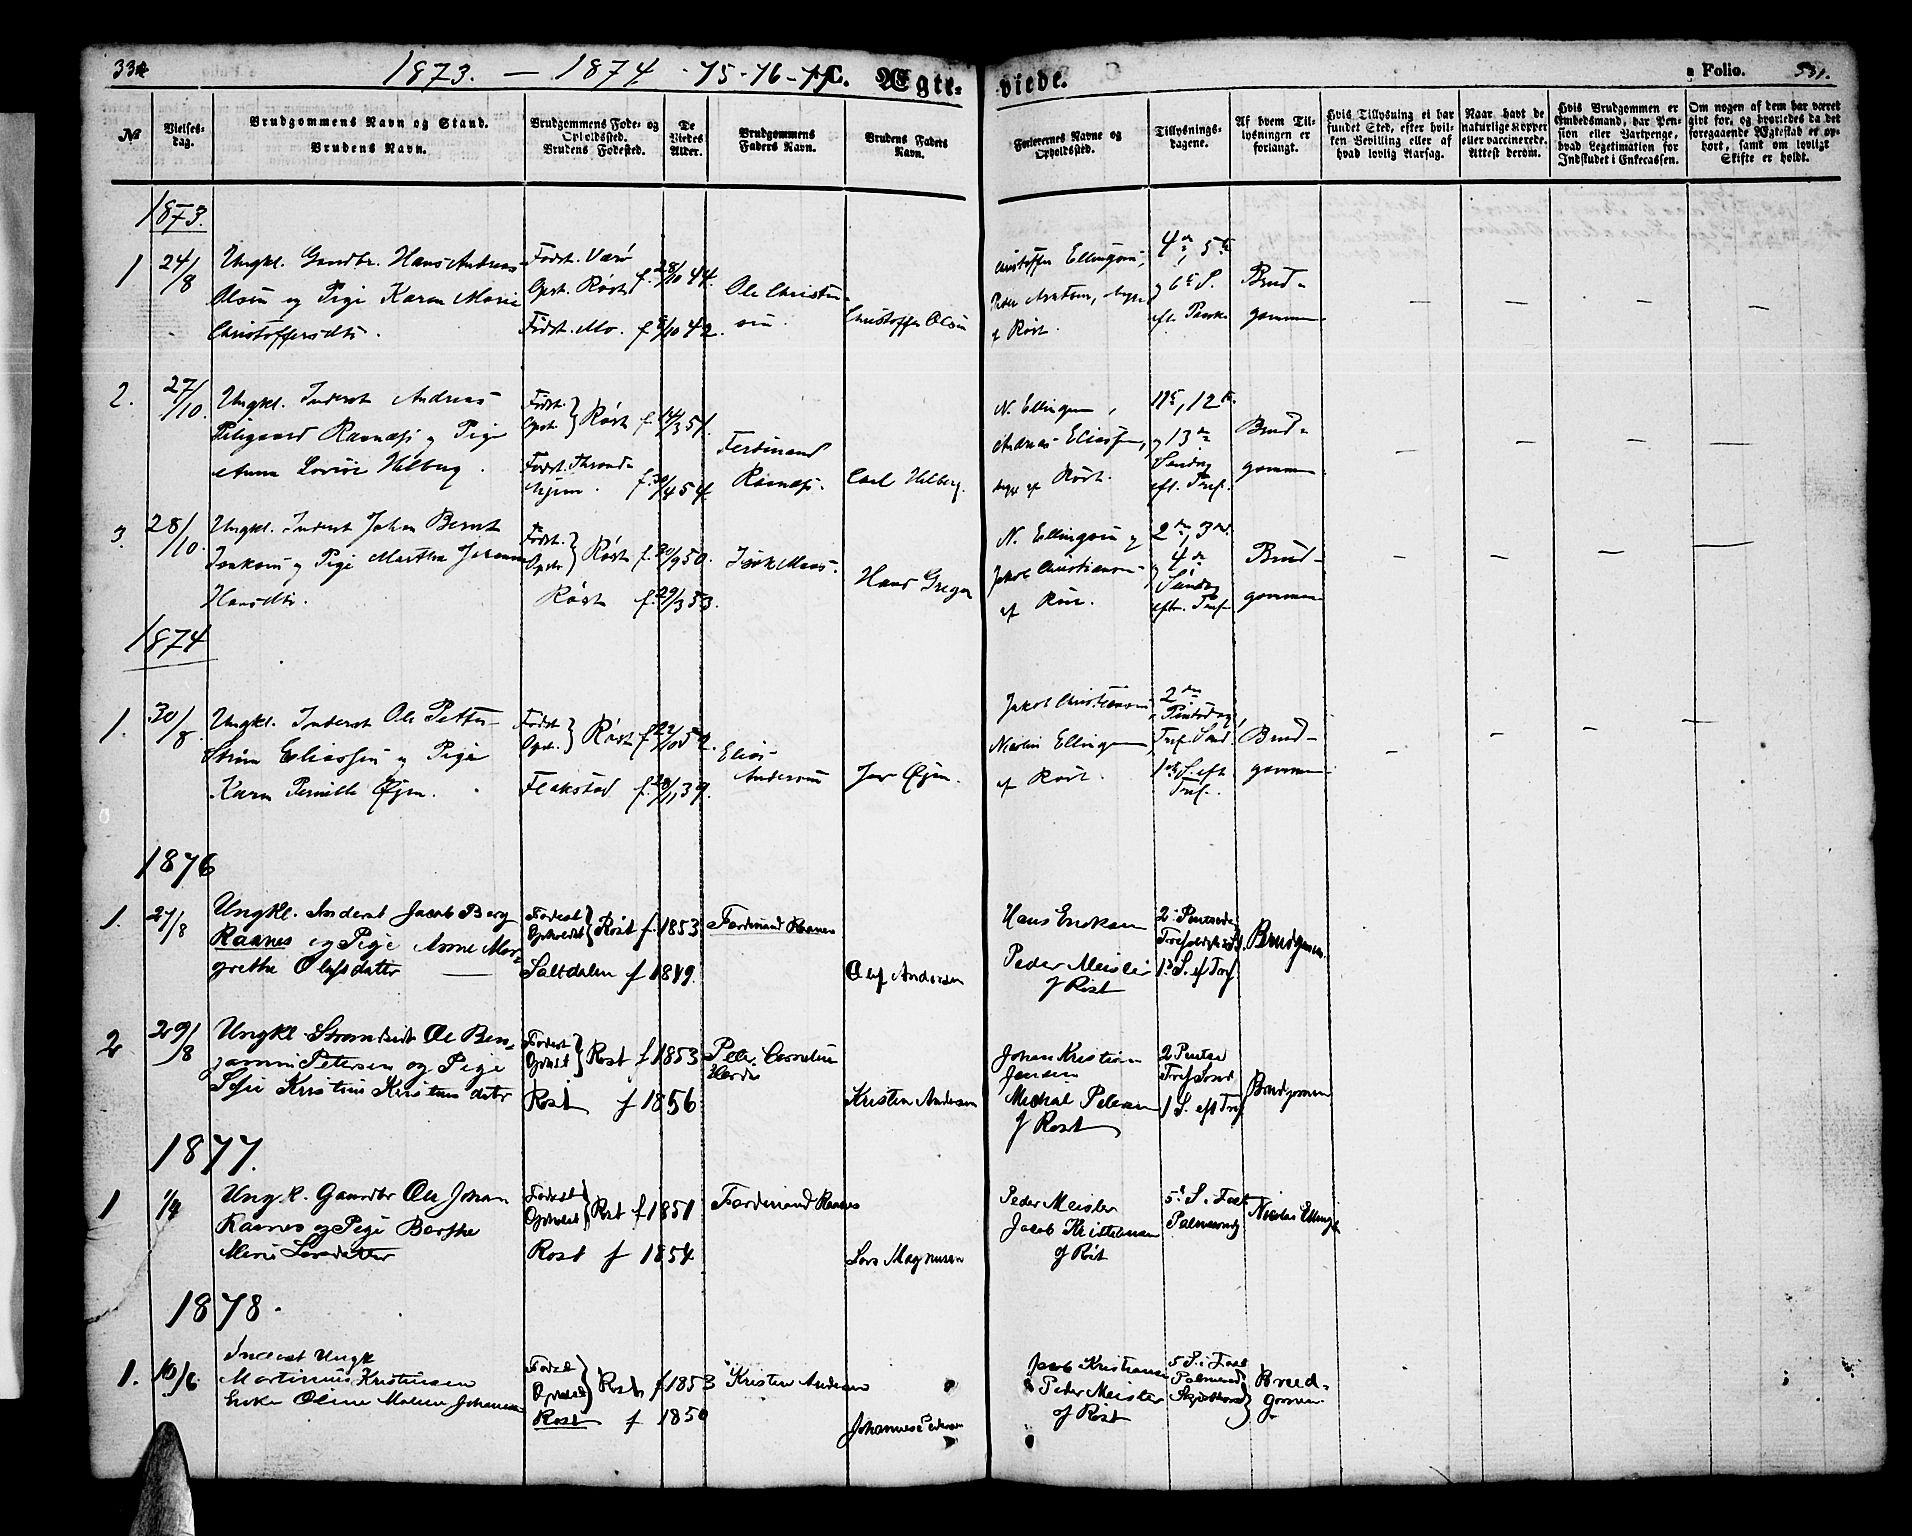 1873. — 1874 -75-76-77 C. Ægte-
viede.
a Folio. 331.
No
Vielses-
dag.
Brudgommens Navn og Stand.
Brudens Navn.
Brudgommens Føde- og
Opholdssted.
Brudens Fødested.
De
Viedes
Alder.
Brudgommens
Faders Navn.
Brudens Faders
Navn.
Forlovernes Navne og
Opholdssted.
Tillysnings-
dagene.
Af hvem Til-
lysningen er
forlangt.
Hvis Tillysning ei har
fundet Sted, efter hvil-
ken Bevilling eller af
hvad lovlig Aarsag.
Naar havt de
naturlige Kopper
eller vaccinerede.
Attest derom.
Hvis Brudgommen er
Embedsmand, har Pen-
sion eller Vartpenge,
hvad Legitimation for
Indskudet i Enkecassen.
Om nogen af dem har været
givt før, og hvorledes da det
foregaaende Ægteskab er op-
hørt, samt om lovligt
Skifte er holdt.
1873.
1 24/8
Ungkl. Gaardbr. Hans Andreas
Olsen og Pige Karen Marie
Christoffersdtr.
Født. Værø
Opst. Røst f. 28/10 44.
Født. Mo. f. 5/10 42.
Ole Christen-
sen.
Christoffer Olsen
Christoffer Ellingsen,
Peder begge
af Røst.
4de, 5te
og 6te S.
eft. Paaske
Brud-
gommen
2. 27/10.
Ungkl. Inderst Andreas
Ravnaas og Pige
Anna Lovise Helberg.
Født.
Opst. Røst f. 14/3 51.
Født. Thrond-
hjem. f. 30/4 54.
Ferdinand
Ravnaas.
Carl Helberg.
N. Ellingsen,
Andreas Eliassen,
begge af Røst.
11te, 12te
og 13de
Søndag
eft. Tref.
Brud-
gommen
3. 28/10.
Ungkl. Inderst Johan Bernt
Isaksen og Pige Martha Johanna
Hansdtr.
Født.
Opst. Røst f. 20/9 50.
Røst f. 29/3 53.
Isak Maas.
Hans Greger
N. Ellingsen og
Jakob Christiansen
af Røst.
2den, 3die
og 4de
Søndag
eft. Tref.
Brud-
gommen
1874
1. 30/8.
Ungkl. Inderst Ole Petter
Eliassen og Pige
Karen Pernille Øyen.
Født.
Opst. Røst f. 22/10 52.
Flakstad f. 28/11 39.
Elias
Andersen
Jar Øyen.
Jakob Christiansen
Martin Ellingsen
af Røst.
2den
Pintsedag,
Tref. Sønd.
1ste S. eft
Tref.
Brud-
gommen
1876
1. 27/8
Ungkl. Inderst Jacob Berg
Raanes og Pige Anne Mar-
grethe Olafsdatter
Fødest
Opholdst Røst f. 1853
Saltdalen f 1849.
Ferdinand Raanes
Oluf Andersen
Hans Eriksen
Peder Meisler
af Røst
2 Pintsedag
Trefoldigh. S.
1ste S. ef Tref
Brudgommen.
2 29/8
Ungkl Strandsidd Ole Ben-
jamin Petersen og Pige
Sofie Kristine Kristensdater
Fødest
Opholdst Røst f 1853
Røst f 1856
Peter Cornelius
Kristen Andersen
Johan Kristian
Jensen
Michal Petersen
af Røst
2 Pintsed
Tref Sønd
1 S. eft Tref
Brudgommen
1877.
1 1/4
Ungk. Gaardbr Ole Johan
Raanes og Pige Berthe
Marie Larsdatter
Fødest
Opholdst Røst f 1851
Røst f 1854
Ferdinand Raanes
Lars Magnusen
Peder Meisler
Jacob Kristiansen
af Røst
5te S. i Fast
Palmesøndg
Nicolai Ellings
1878.
1. 10/6
Inderst Ungk
Martinius Kristensen
Enke Oline Malene Johannesd
Fødest
Opholdst Røst f 1853
Røst f 1850
Kristen Andersen
Johannes Pedersen
Jacob Kristiansen
Peder Meisler
af Røst
5 S. i Faste
Palmesønd
Skjærthorsd
Brud-
gommen